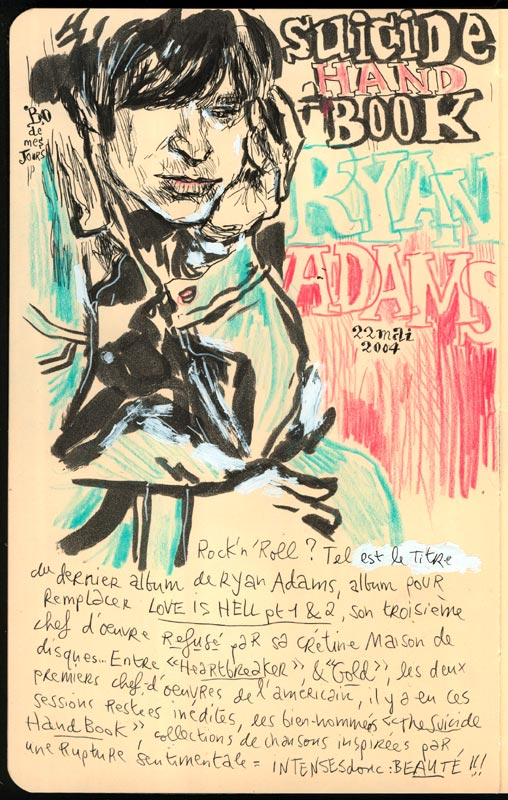 SUICIDE
HAND
BOOK
BO
de
mes
JOURS
RYAN
ADAMS
22 mai
2004
Rock'n'Roll ? Tel est le Titre
du dernier album de Ryan Adams, album pour
remplacer LOVE IS HELL pt 1 & 2, son troisième
chef d'oeuvre Refusé par sa crétine Maison de
disques... Entre «Heartbreaker», & "Gold", les deux
premiers chef-d'oeuvres de l'américain, il y a eu ces
sessions Restées inédites, les bien-nommées «The Suicide
HandBook», collections de chansons inspirées par
une Rupture Sentimentale = INTENSES donc : BEAUTÉ !!!